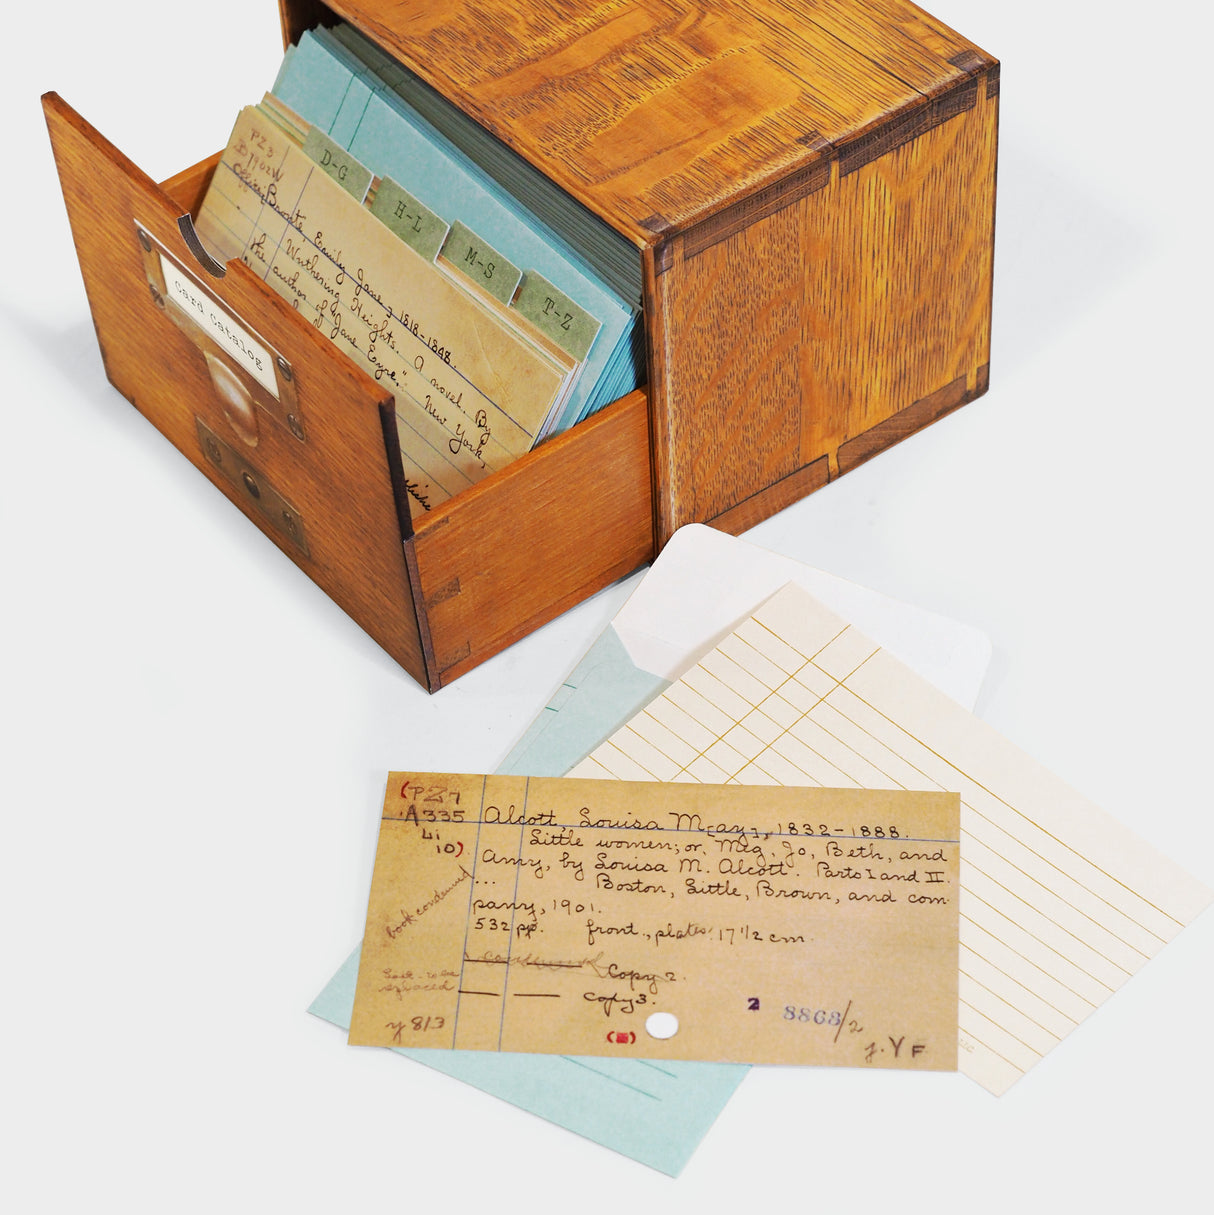 PZ3
D-G
H-L
M-S
T-Z
Brontë, Emily Jane, 1818-1848.
Wuthering Heights. A novel. By
the author of "Jane Eyre." New York,
card catalog
(PZ7
A335
Li
10)
Alcott, Louisa M[ay], 1832-1888.
Little women; or, Meg, Jo, Beth, and
Amy, by Louisa M. Alcott. Parts I and II.
... Boston, Little, Brown, and com-
pany, 1901.
532 pp. front., plates. 17 1/2 cm.
book condemned
Copy 2.
replaced
Copy 3.
y 813
2 8868/2
j. Y F